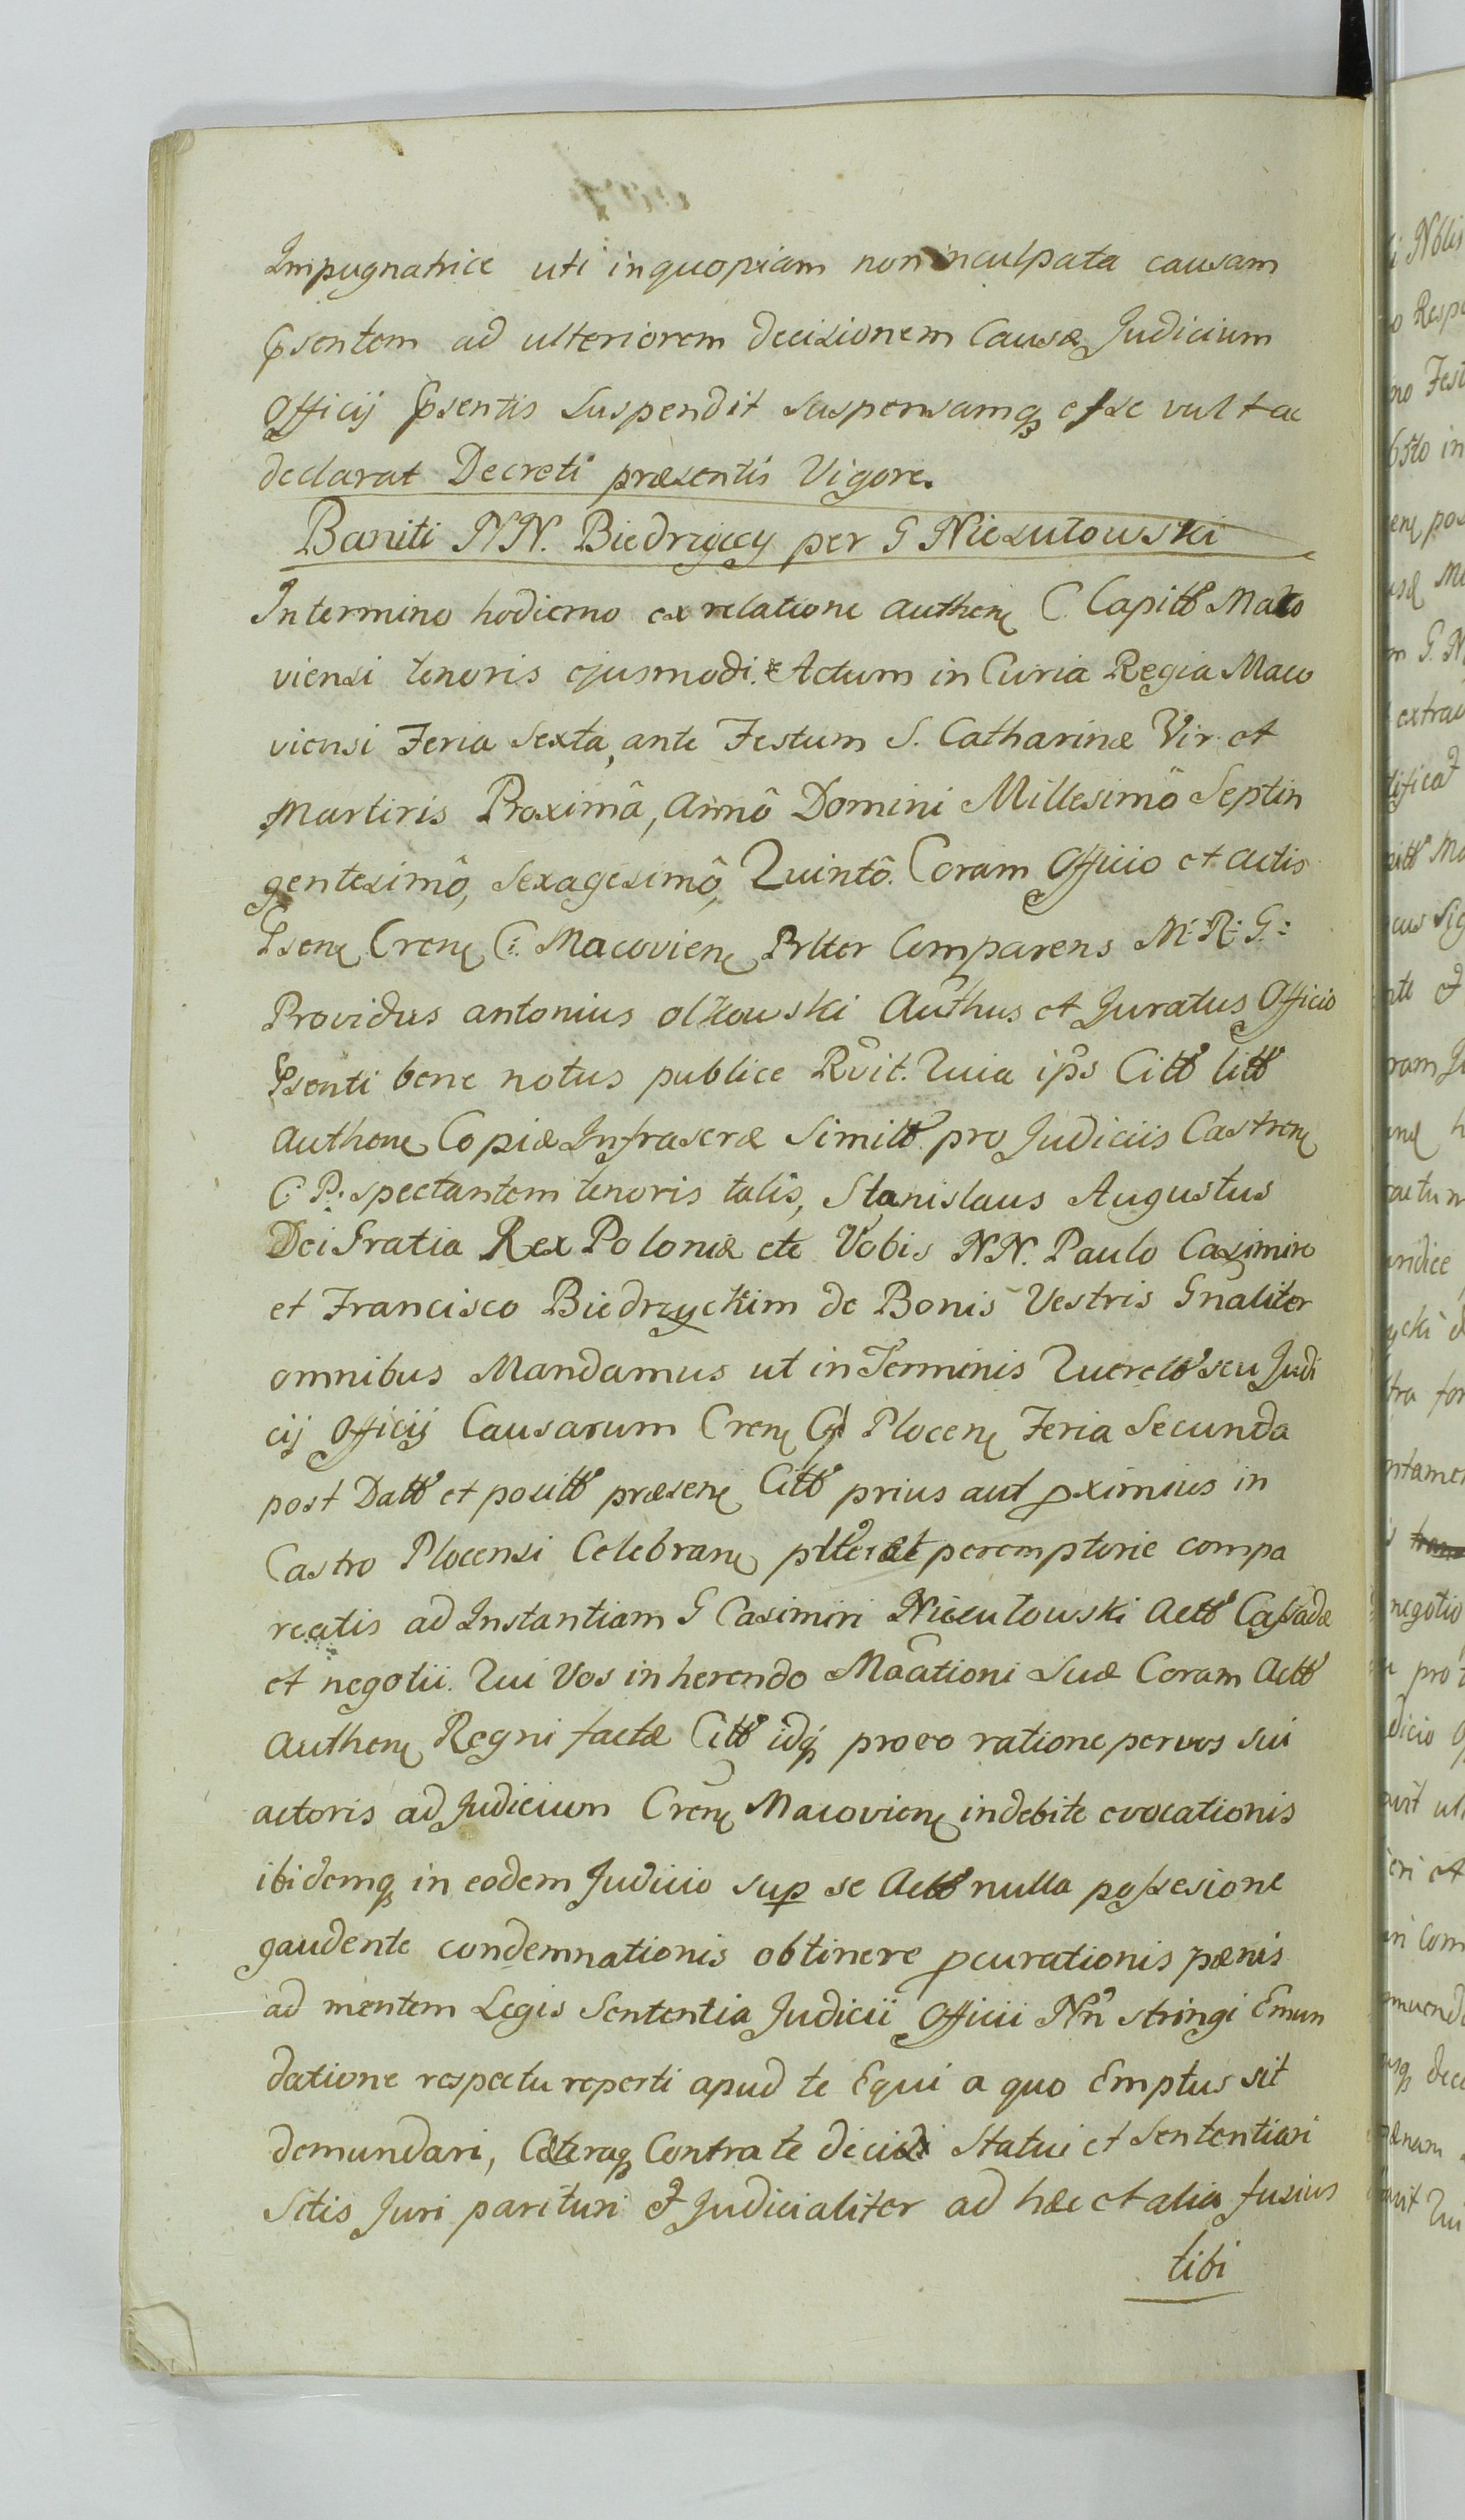 Impugnatrice uti inquopiam non inculpata causam
Psentem ad ulteriorem decisionem Causæ Judicium
Officij Psentis Suspendit suspensamq esse vult ac
declarat Decreti præsentis Vigore.
Baniti NN. Biedrzyccy per G Niezutowski
In termino hodierno ex relatione authen C. Capitt Maco
viensi tenoris ejusmodi. Actum in Curia Regia Maco
viensi Feria Sexta, ante Festum S. Catharinæ Vir. et
Martiris Proximâ, Annô Domini Millesimô Septin
gentesimô, Sexagesimô, Quintô. Coram Officio et actis
Psen Cren C: Macovien Prlter Comparens M: R: G:
Providus antonius olkowski Authus et Juratus Officio
Psenti bene notus publice Rvit. Quia ips Citt litt
authen Copiæ Infrascræ Simitt pro Judiciis Castren
C. P: spectantem tenoris talis, Stanislaus Augustus
Dei Gratia Rex Poloniæ etc Vobis NN. Paulo Casimiro
et Francisco Biedrzyckim de Bonis Vestris Gnaliter
omnibus Mandamus ut in Terminis Querelt seu Judi
cij Officij Causarum Cren C Plocen Feria Secunda
post Datt et positt præsen Citt prius aut pximius in
Castro Plocensi Celebran plter et peremptorie compa
reatis ad Instantiam G Casimiri Niezutowski Actt Cassadæ
et negotii. Qui Vos inherendo Maationi Suæ Coram Actt
Authen Regni factæ Citt idq pro eo ratione per vos sui
actoris ad Judicium Cren Macovien indebite evocationis
ibidemq in eodem Judicio sup se Actt nulla possesione
gaudente condemnationis obtinere pcurationis pænis
ad mentem Legis Sententia Judicii Officii Nn stringi Emun
datione respectu reperti apud te Equi a quo Emptus sit
demundari, Cæteraq Contra te decidi Statui et Sententiari
Sitis Juri parituri et Judicialiter ad hæc et alia fusius
tibi